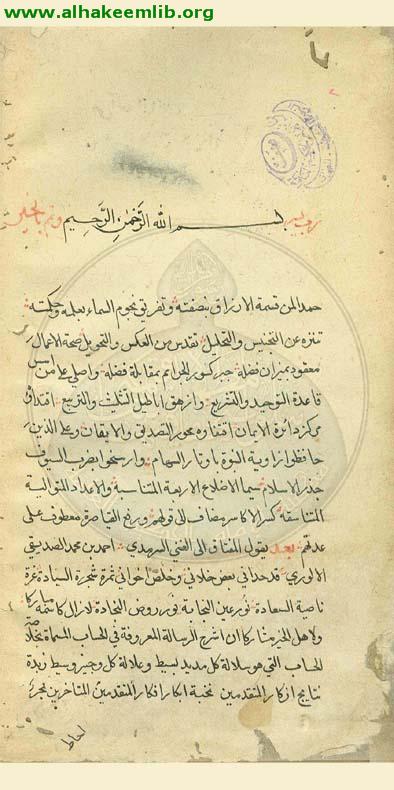 www.alhakeemlib.org
رب يسر بسم الله الرحمن الرحيم وتمم بالخير
حمدا لمن قسمة الارزاق بنصفته وتفريق نجوم السماء بعدله وحكمته
تنزه عن التجنيس والتحليل تقدس من العكس والتحويل صحة الاعمال
معقود بميزان فضلة جبر كسور الجرائم بمقابلة فضلة واصلي على من اسس
قاعدة التوحيد والتفريع وازهق اباطيل التثليث والتربيع اقتداؤه
مركز دائرة الايمان اقتفاوه محور التصديق والايقان وعلى الذين
حافظوا زاوية النبوة باوتار السهام وارسخوا بضرب السيوف
جذر الاسلام سيما الاضلاع الاربعة المتناسبة والاعداد المتوالية
المتناسقة كسر الاكاسر مضاف الى قوتهم ورفع القياصرة معطوف على
عدلهم بعد يقول المفتاق الى الغني السرمدي احمد بن محمد الصديقي
قد حداني بعض خلاني وخلص اخواني ثمرة شجرة السيادة غرة
ناصية السعادة نور عين النجابة نور روض النجادة لازال كاسمه مباركا
ولاهل الخير مشاركا ان اشرح الرسالة المعروفة في الحساب المسماة بخلاصة
الحساب التي هو سلالة كل مديد بسيط وعلالة كل وجيز وسيط زبدة
نتايج افكار المتقدمين نخبة ابكار افكار المتقدمين المتاخرين